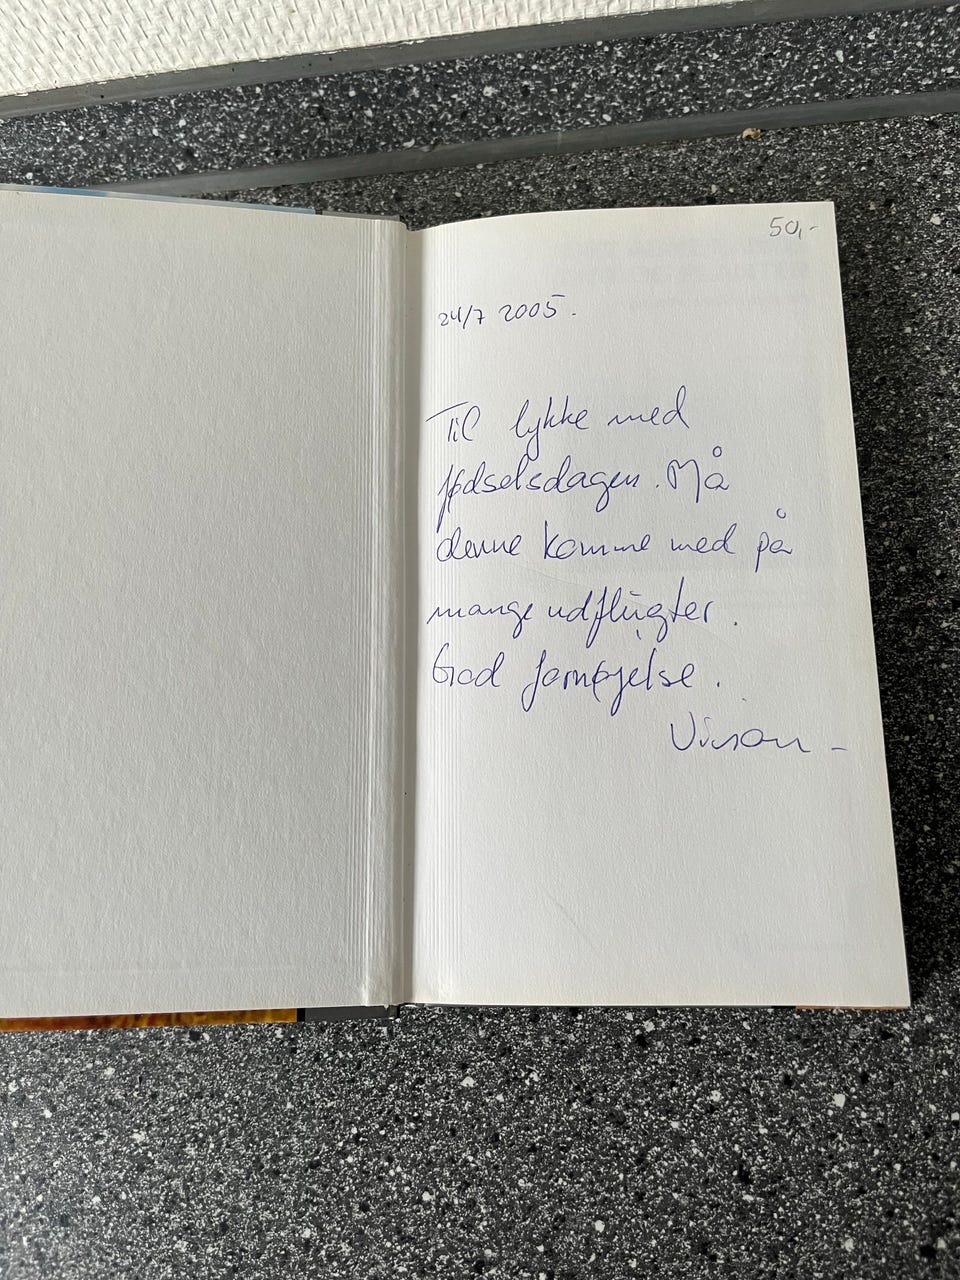 50,-
24/7 2005.
Til lykke med
fødselsdagen. Må
denne komme med på
mange udflugter.
God fornøjelse.